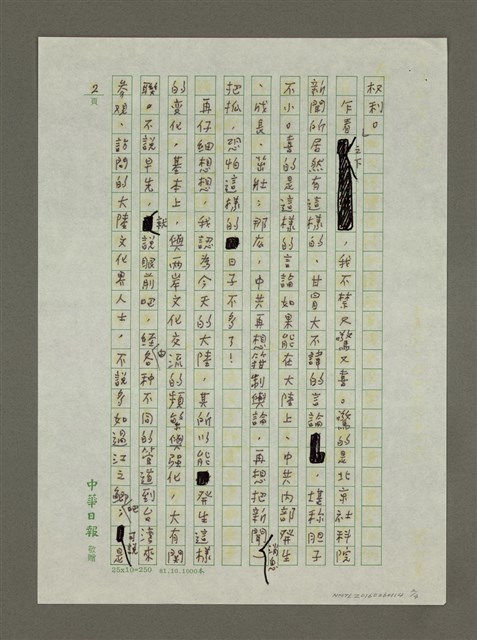 权利。
乍看之下，我不禁又驚又喜。驚的是北京社科院
新聞所居然有這樣的、甘冒大不諱的言論，堪称胆子
不小。喜的是這樣的言論如果能在大陸上、中共内部發生
、成長、茁壯。那広，中共再想箝制輿論、再想把新聞消息
把抓，恐怕這樣的日子不多了！
再仔細想想，我認為今天的大陸，其所以能發生這樣
的變化，基本上，與兩岸文化交流的頻繁與强化，大有関
聯。不說早先，就說眼前吧，經由各种不同的管道到台湾來
参观、訪問的大陸文化界人士，不說多如過江之鯽吧，可說是
2頁
中華日報 敬贈
25x10=250 81.10.1000本